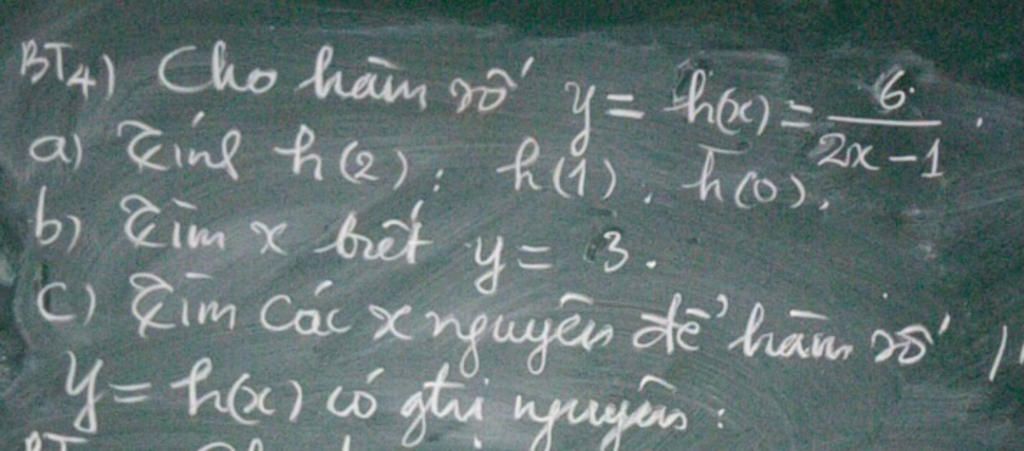 BT4) Cho hàm số y = h(x) = 6/(2x-1).
a) Tính h(2); h(1). h(0).
b) Tìm x biết y = 3.
c) Tìm các x nguyên để hàm số
y = h(x) có gtrị nguyên: